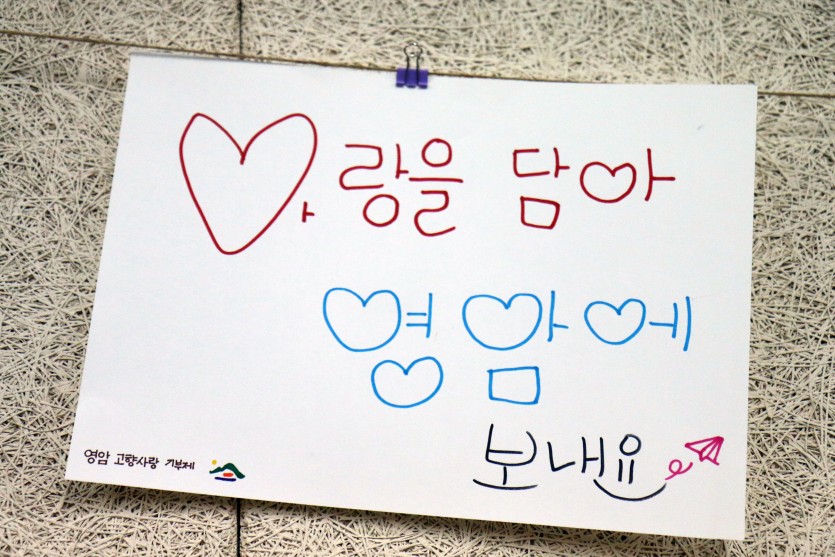 ♡랑을 담아
영암에
보내요
영암 고향사랑 기부제